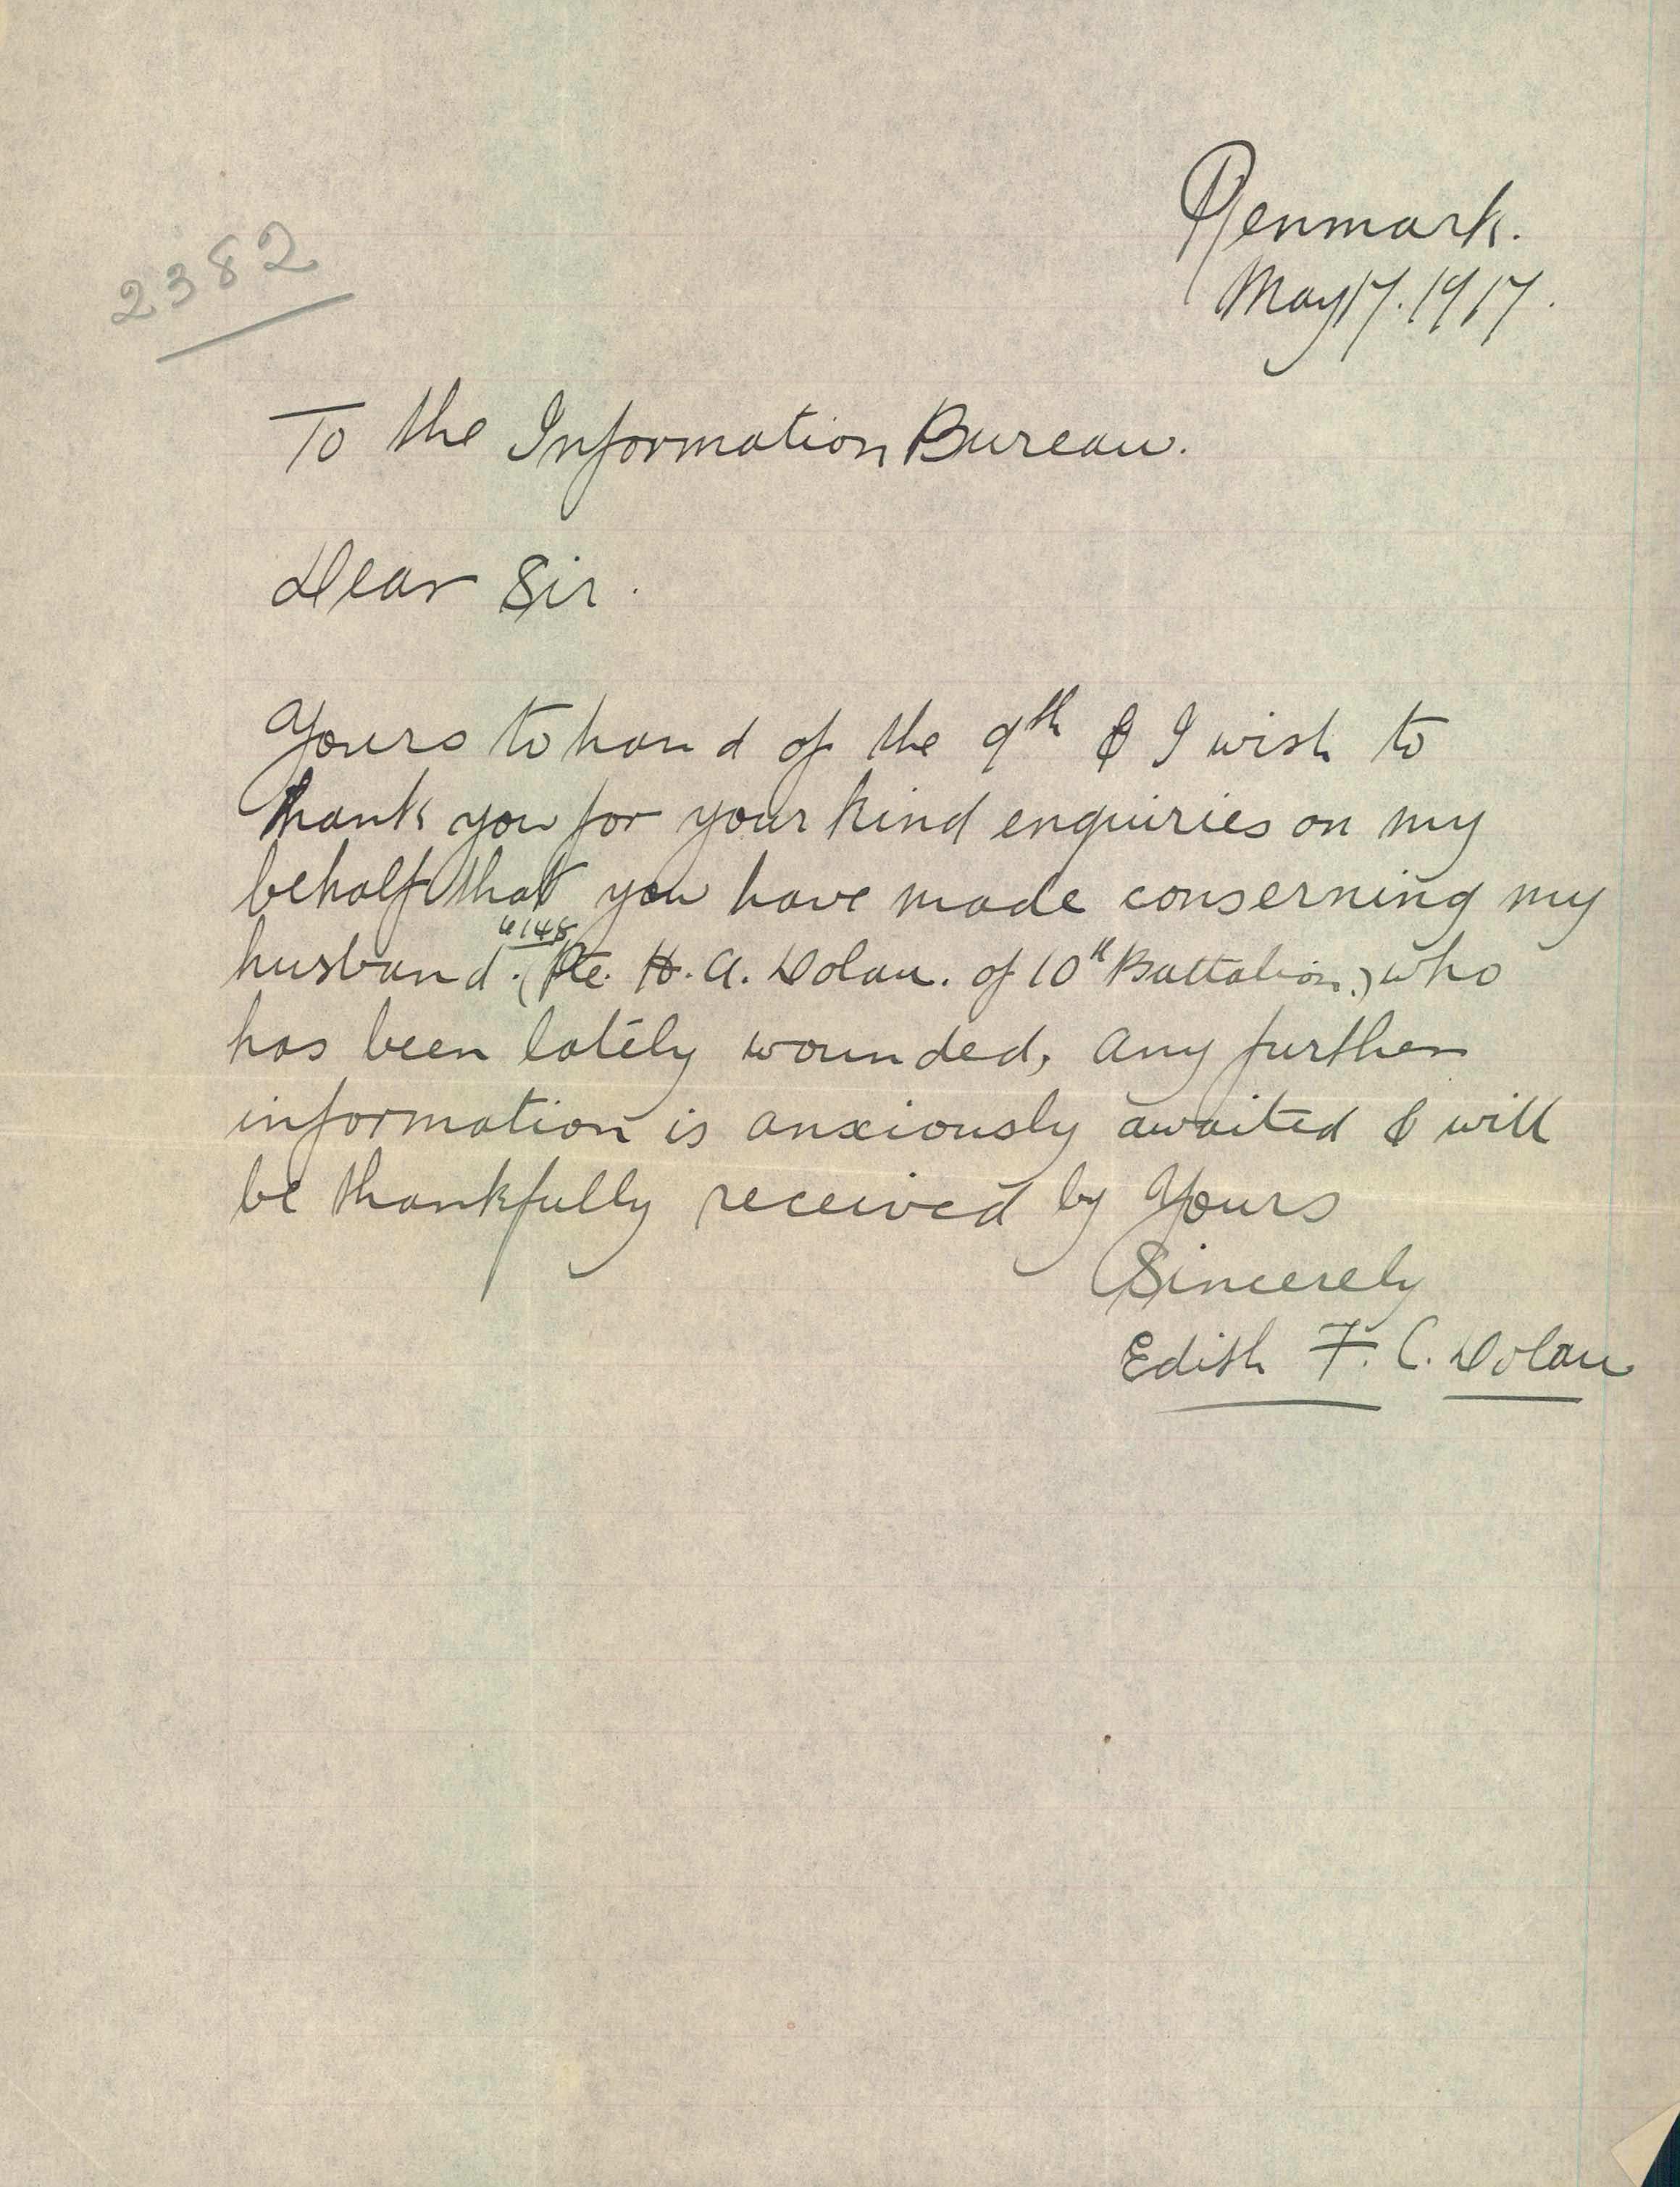 2382
Renmark.
May 17. 1917.
To the Information Bureau.
Dear Sir.
Yours to hand of the 9th & I wish to
thank you for your kind enquiries on my
behalf that you have made conserning my
6148
husband. (Pte. H. A. Dolan. of 10th Battalion.) who
has been lately wounded, any further
information is anxiously awaited & will
be thankfully received by Yours
Sincerely
Edith F. C. Dolan